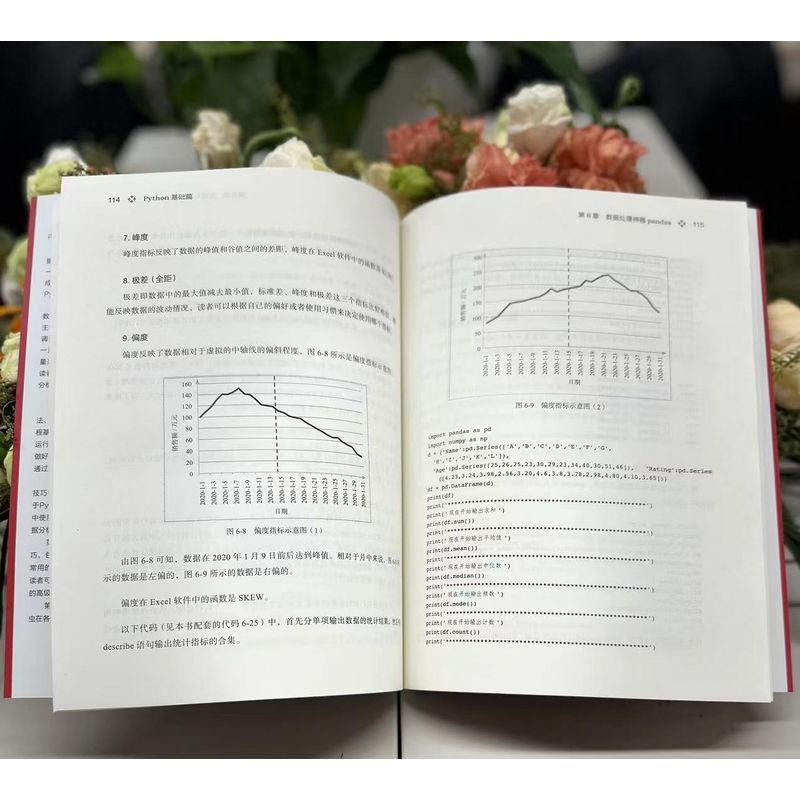 114 Python 基础篇
7. 峰度
峰度指标反映了数据的峰值和谷值之间的差距，峰度在 Excel 软件中的函数是
8. 极差（全距）
极差即数据中的最大值减去最小值，标准差、峰度和极差这三个指标
能反映数据的波动情况，读者可以根据自己的偏好或者使用习惯来决定使用哪个指标
9. 偏度
偏度反映了数据相对于虚拟的中轴线的偏斜程度，图 6-8 所示是偏度指标示意图
销售额 / 万元
160
140
120
100
80
60
40
20
0
2020-1-1
2020-1-3
2020-1-5
2020-1-7
2020-1-9
2020-1-11
2020-1-13
2020-1-15
2020-1-17
2020-1-19
2020-1-21
2020-1-23
2020-1-25
2020-1-27
2020-1-29
2020-1-31
日期
图 6-8 偏度指标示意图（1）
由图 6-8 可知，数据在 2020 年 1 月 9 日前后达到峰值。相对于月中来说，图 6-8
示的数据是左偏的，图 6-9 所示的数据是右偏的。
偏度在 Excel 软件中的函数是 SKEW。
以下代码（见本书配套的代码 6-25）中，首先分单项输出数据的统计结果，
describe 语句输出统计指标的合集。
第 6 章 数据处理神器 pandas 115
销售额 / 万元
300
250
200
150
100
50
0
2020-1-1
2020-1-3
2020-1-5
2020-1-7
2020-1-9
2020-1-11
2020-1-13
2020-1-15
2020-1-17
2020-1-19
2020-1-21
2020-1-23
2020-1-25
2020-1-27
2020-1-29
2020-1-31
日期
图 6-9 偏度指标示意图（2）
import pandas as pd
import numpy as np
d = {'Name':pd.Series(['A','B','C','D','E','F','G',
'H','I','J','K','L']),
'Age':pd.Series([25,26,25,23,30,29,23,34,40,30,51,46]), 'Rating':pd.Series
([4.23,3.24,3.98,2.56,3.20,4.6,3.8,3.78,2.98,4.80,4.10,3.65])}
df = pd.DataFrame(d)
print(df)
print('现在开始输出求和')
print(df.sum())
print('现在开始输出平均值')
print(df.mean())
print('现在开始输出中位数')
print(df.median())
print('现在开始输出频数')
print(df.mode())
print('现在开始输出计数')
print(df.count())